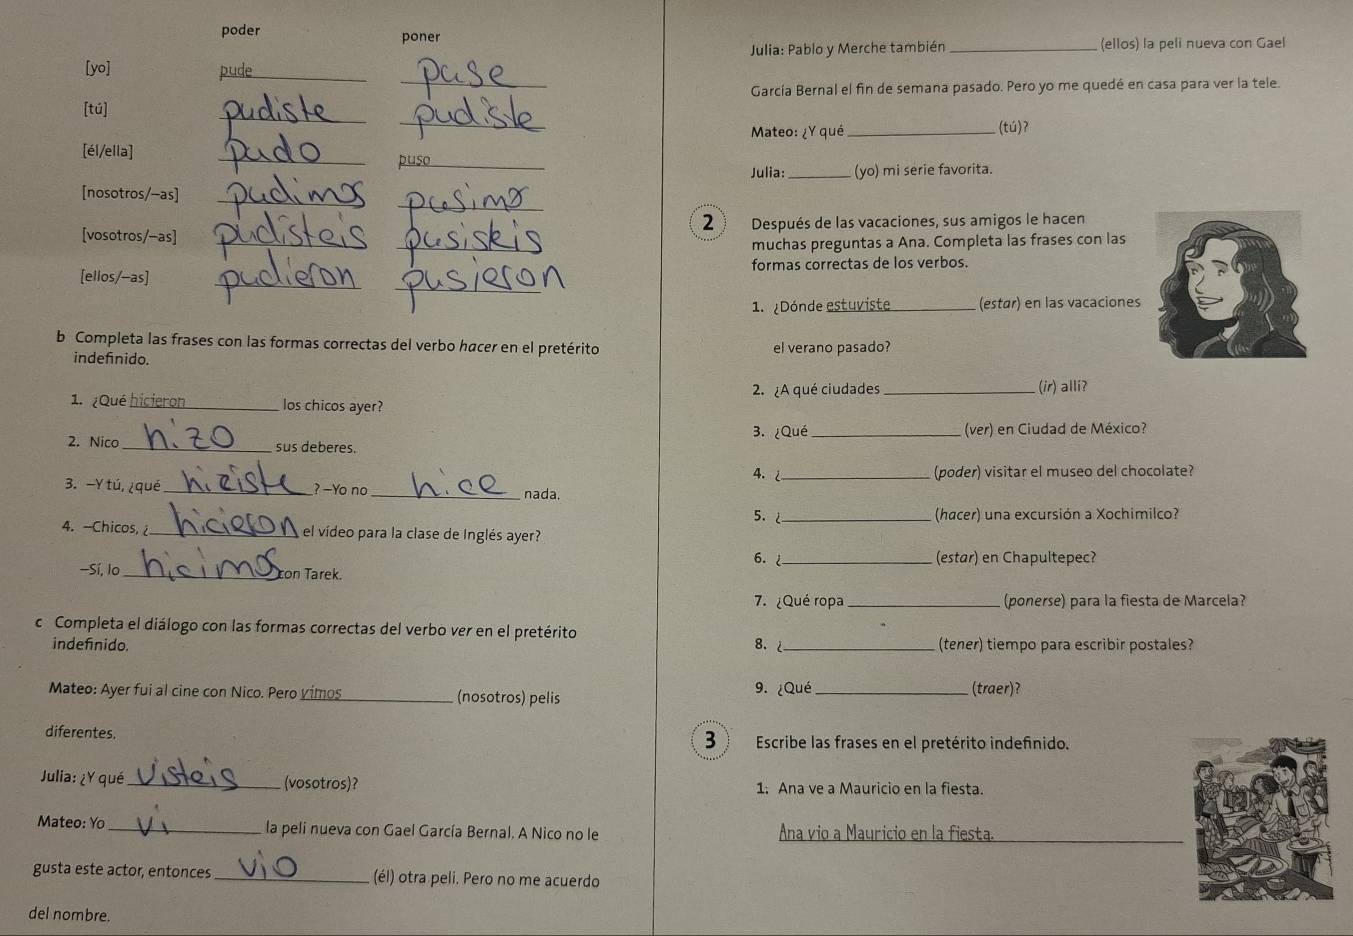 poder poner
[yo] pude puse
[tú] pudiste pudiste
[él/ella] pudo puso
[nosotros/-as] pudimos pusimos
[vosotros/-as] pudisteis pusisteis
[ellos/-as] pudieron pusieron
b Completa las frases con las formas correctas del verbo hacer en el pretérito
indefinido.
1. ¿Qué hicieron los chicos ayer?
2. Nico hizo sus deberes.
3. -Y tú, ¿qué hiciste ? -Yo no hice nada.
4. -Chicos, ¿ hicieron el vídeo para la clase de Inglés ayer?
-Sí, lo hicimos con Tarek.
c Completa el diálogo con las formas correctas del verbo ver en el pretérito
indefinido.
Mateo: Ayer fui al cine con Nico. Pero vimos (nosotros) pelis
diferentes.
Julia: ¿Y qué visteis (vosotros)?
Mateo: Yo vi la peli nueva con Gael García Bernal. A Nico no le
gusta este actor, entonces vio (él) otra peli. Pero no me acuerdo
del nombre.
Julia: Pablo y Merche también ____ (ellos) la peli nueva con Gael
García Bernal el fin de semana pasado. Pero yo me quedé en casa para ver la tele.
Mateo: ¿Y qué ____ (tú)?
Julia: ____ (yo) mi serie favorita.
2 Después de las vacaciones, sus amigos le hacen
muchas preguntas a Ana. Completa las frases con las
formas correctas de los verbos.
1. ¿Dónde estuviste (estar) en las vacaciones
el verano pasado?
2. ¿A qué ciudades ____ (ir) allí?
3. ¿Qué ____ (ver) en Ciudad de México?
4. ¿____ (poder) visitar el museo del chocolate?
5. ¿____ (hacer) una excursión a Xochimilco?
6. ¿____ (estar) en Chapultepec?
7. ¿Qué ropa ____ (ponerse) para la fiesta de Marcela?
8. ¿____ (tener) tiempo para escribir postales?
9. ¿Qué ____ (traer)?
3 Escribe las frases en el pretérito indefinido.
1. Ana ve a Mauricio en la fiesta.
Ana vio a Mauricio en la fiesta.